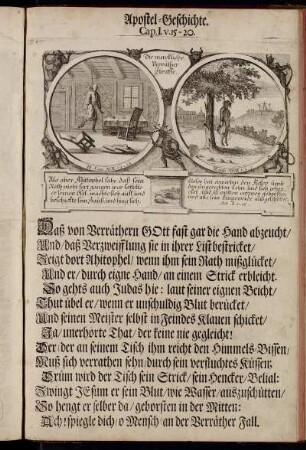 Apostel-Geschichte.
Cap. I. v. 15-20.
Die
Verräther
Straffe.
Als aber Ahitophel sahe, daß sein
Rath nicht fort gangen war sattelte
er seinen Esel, machte sich auff und
beschickte sein Hauß, und hing sich.
Dieser hat erworben den Acker umb
den ungerechten Lohn, und sich erhen-
cket, und ist mitten entzwey geborsten,
und alle sein Eingeweide außgeschüttet.
Daß von Verräthern GOtt fast gar die Hand abzeucht/
Und daß Verzweifflung sie in ihrer List bestricket/
Zeigt dort Ahitophel/ wenn ihm sein Rath mißglücket/
Und er/ durch eigne Hand/ an einem Strick erbleicht.
So gehts auch Judas hie: laut seiner eignen Beicht/
Thut übel er/ wenn er unschuldig Blut berücket/
Und seinen Meister selbst in Feindes Klauen schicket/
Ja/ unerhorte That/ der keine nie gegleicht!
Der/ der an seinem Tisch ihm reicht den Himmels-Bissen/
Muß sich verrathen sehn/ durch sein verfluchtes Küssen:
Drüm wird der Tisch sein Strick/ sein Hencker/ Belial:
Zwingt JEsum er sein Blut/ wie Wasser/ auszuschütten/
So hengt er selber da/ geborsten in der Mitten:
Ach! spiegle dich/ o Mensch/ an der Verräther Fall.